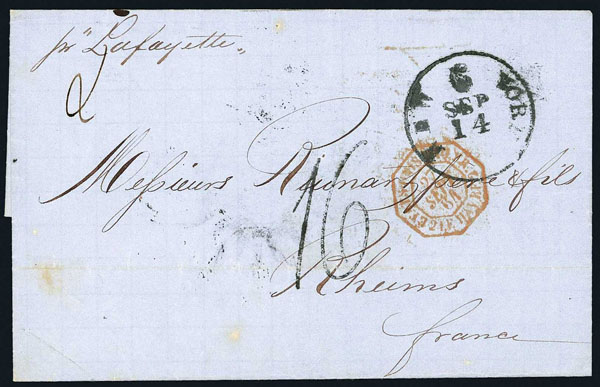 pr "Lafayette"
2
NEW YORK
6
SEP
14
Messieurs père & fils
16
Rheims
france